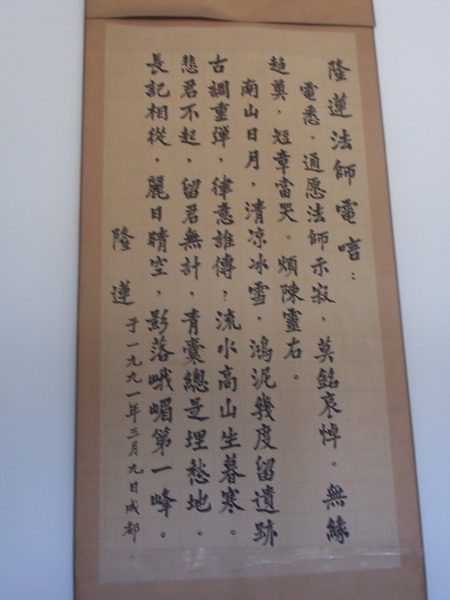 隆蓮法師電唁：
電悉．通愿法師示寂，莫銘哀悼。無緣
趋奠，短章當哭。煩陳靈右。
南山日月，清凉冰雪，鴻泥幾度留遺跡
古調重彈，律意誰傳，流水高山生暮寒。
悲君不起，留君無計，青囊總是埋愁地。
長記相從，麗日晴空，影落峨嵋第一峰。
隆蓮
于一九九一年三月九日成都